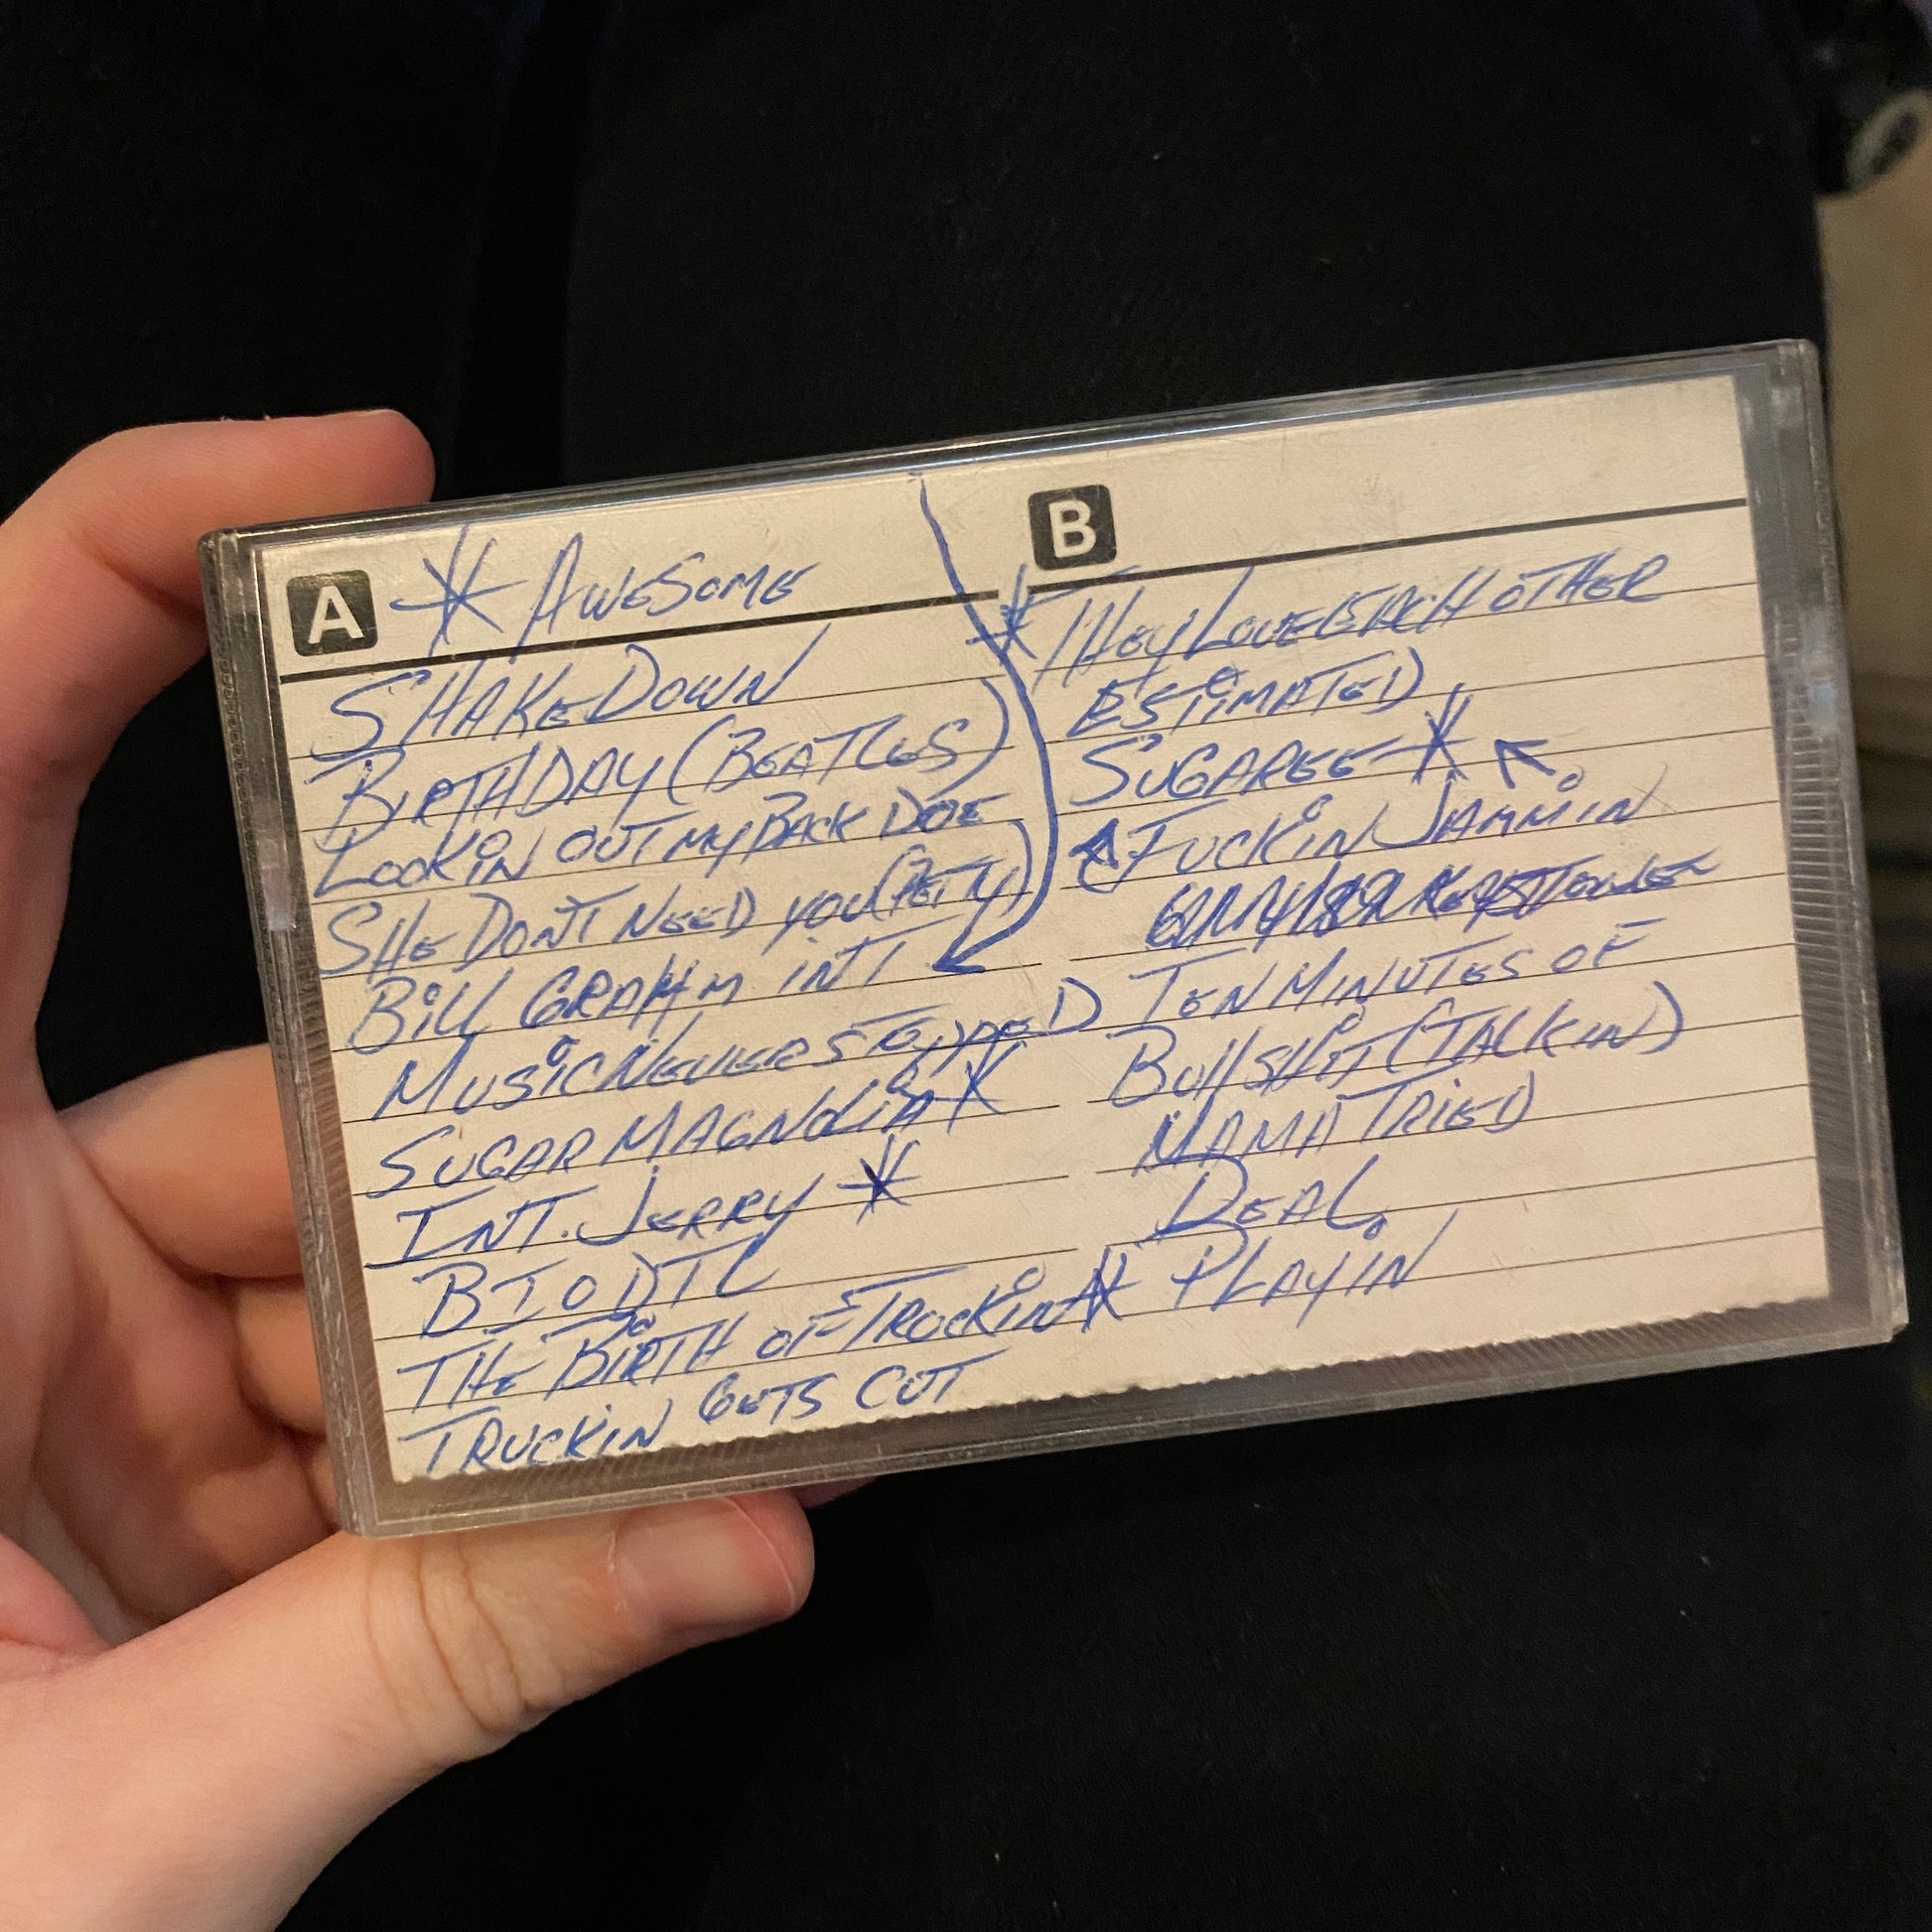 A * AWESOME
SHAKEDOWN
BIRTHDAY (BEATLES)
LOOKIN OUT MY BACK DOE
SHE DON'T NEED YOU (PETTY)
BILL GRAHM INT
MUSIC NEVER STOPPED
SUGAR MAGNOLIA *
INT. JERRY *
BIODTL
THE BIRTH OF TRUCKIN *
TRUCKIN GETS CUT
B
* THEY LOVE EACH OTHER
ESTIMATED
SUGAREE *
FUCKIN JAMMIN
TEN MINUTES OF
BULLSHIT (TALKIN)
MAMA TRIED
DEAL
PLAYIN